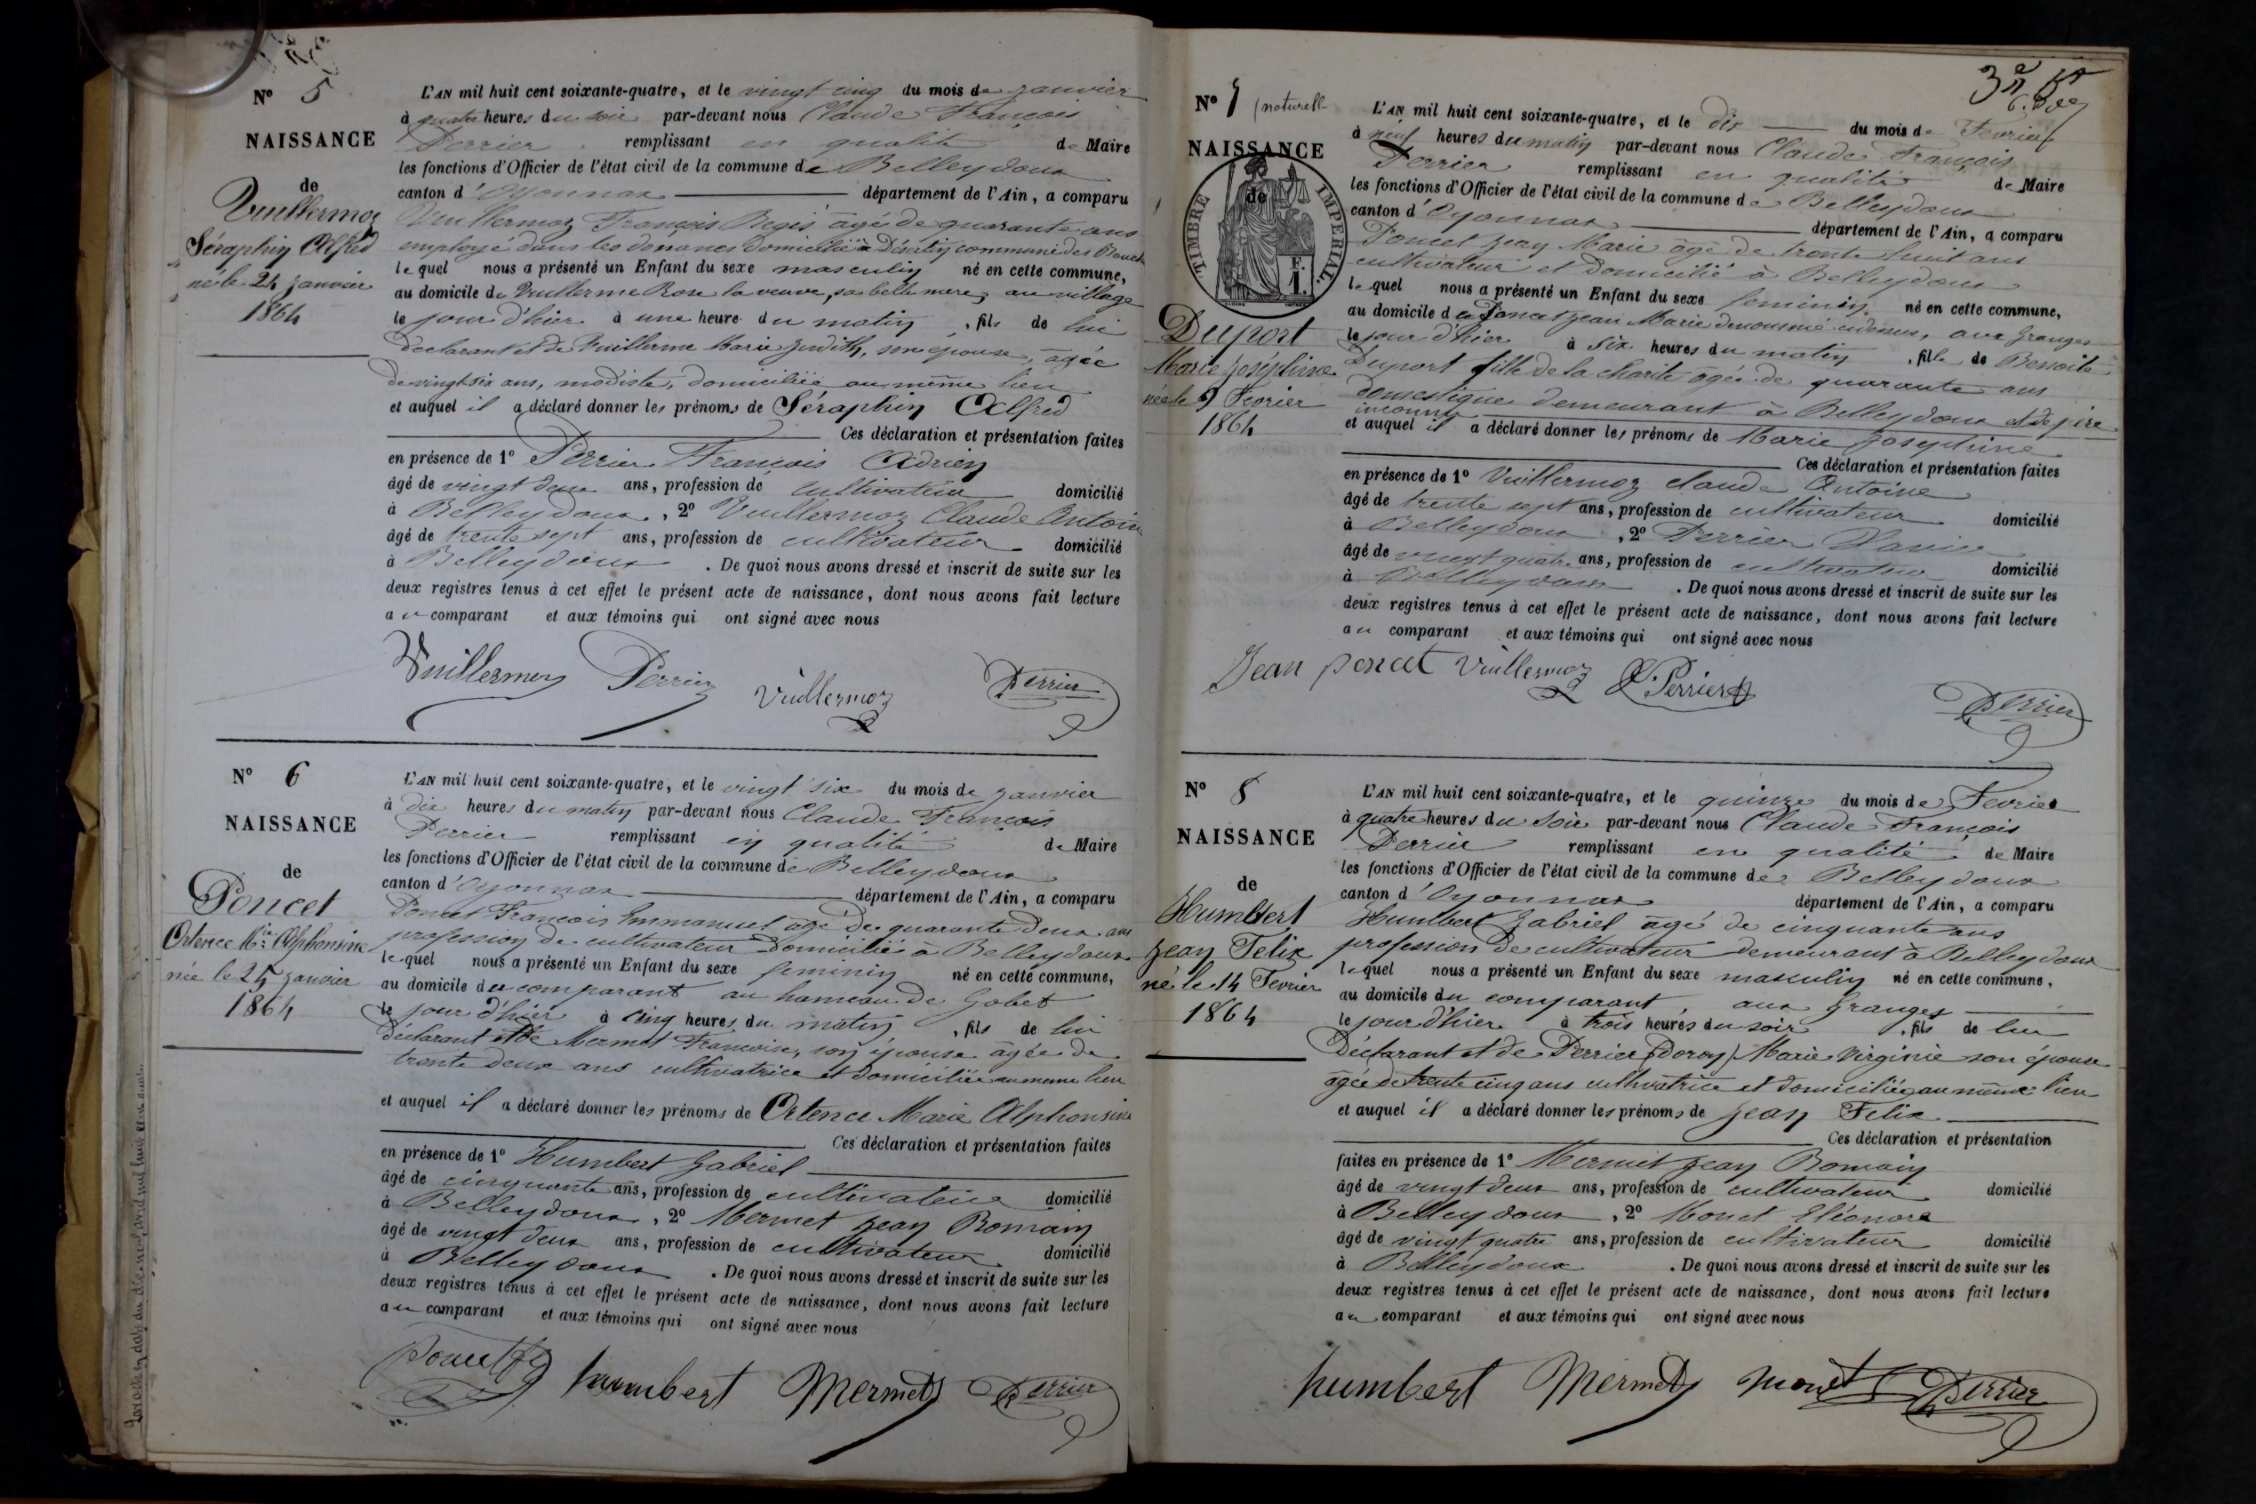 N° 5
NAISSANCE
de
Vuillermoz
Séraphin Alfred
né le 24 janvier
1864
L'AN mil huit cent soixante-quatre, et le vingt cinq du mois de janvier
à quatre heures du soir par-devant nous Claude François
Perrier remplissant en qualité de Maire
les fonctions d'Officier de l'état civil de la commune de Belleydoux
canton d'Oyonnax département de l'Ain, a comparu
Vuillermoz François Regis, âgé de quarante ans
employé dans les douanes domicilié à Désertin commune des Bouch
lequel nous a présenté un Enfant du sexe masculin né en cette commune,
au domicile de Vuillerme Rose la veuve, sa belle mere, au village
le jour d'hier à une heure du matin, fils de lui
déclarant et de Vuillerme Marie Judith, son épouse, âgée
de vingt six ans, modiste, domiciliée au même lieu
et auquel il a déclaré donner les prénoms de Séraphin Alfred
Ces déclaration et présentation faites
en présence de 1° Perrier François Adrien
âgé de vingt deux ans, profession de cultivateur domicilié
à Belleydoux, 2° Vuillermoz Claude Antoine
âgé de trente sept ans, profession de cultivateur domicilié
à Belleydoux. De quoi nous avons dressé et inscrit de suite sur les
deux registres tenus à cet effet le présent acte de naissance, dont nous avons fait lecture
au comparant et aux témoins qui ont signé avec nous
Vuillermoz Perrier Vuillermoz Perrier
N° 6
NAISSANCE
de
Poncet
Ortence Mie Alphonsine
née le 25 janvier
1864
L'AN mil huit cent soixante-quatre, et le vingt six du mois de janvier
à dix heures du matin par-devant nous Claude François
Perrier remplissant en qualité de Maire
les fonctions d'Officier de l'état civil de la commune de Belleydoux
canton d'Oyonnax département de l'Ain, a comparu
Poncet François Emmanuel âgé de quarante deux ans
profession de cultivateur domicilié à Belleydoux
lequel nous a présenté un Enfant du sexe feminin né en cette commune,
au domicile du comparant au hameau de Gobet
le jour d'hier à cinq heures du matin, fils de lui
déclarant et de Mermet Françoise, son épouse âgée de
trente deux ans cultivatrice et domiciliée au meme lieu
et auquel il a déclaré donner les prénoms de Ortence Marie Alphonsine
Ces déclaration et présentation faites
en présence de 1° Humbert Gabriel
âgé de cinquante ans, profession de cultivateur domicilié
à Belleydoux, 2° Mermet Jean Romain
âgé de vingt deux ans, profession de cultivateur domicilié
à Belleydoux. De quoi nous avons dressé et inscrit de suite sur les
deux registres tenus à cet effet le présent acte de naissance, dont nous avons fait lecture
au comparant et aux témoins qui ont signé avec nous
Poncet humbert Mermet Perrier
3e
N° 7 (naturell
NAISSANCE
de
TIMBRE IMPERIAL.
F.
1.
Duport
Marie Joséphine
née le 9 Fevrier
1864
L'AN mil huit cent soixante-quatre, et le dix du mois de Fevrier
à neuf heures du matin par-devant nous Claude François
Perrier remplissant en qualité de Maire
les fonctions d'Officier de l'état civil de la commune de Belleydoux
canton d'Oyonnax département de l'Ain, a comparu
Poncet Jean Marie âgé de trente huit ans
cultivateur et domicilié à Belleydoux
lequel nous a présenté un Enfant du sexe feminin né en cette commune,
au domicile de Poncet Jean Marie denommé cidessus, aux granges
le jour d'hier à six heures du matin, fille de Benoite
Duport fille de la charité âgée de quarante ans
domestique demeurant à Belleydoux et de père
inconnu
et auquel il a déclaré donner les prénoms de Marie Josephine
Ces déclaration et présentation faites
en présence de 1° Vuillermoz claude Antoine
âgé de trente sept ans, profession de cultivateur domicilié
à Belleydoux, 2° Perrier
âgé de vingt quatre ans, profession de cultivateur domicilié
à Belleydoux. De quoi nous avons dressé et inscrit de suite sur les
deux registres tenus à cet effet le présent acte de naissance, dont nous avons fait lecture
au comparant et aux témoins qui ont signé avec nous
Jean poncet Vuillermoz Perrier Perrier
N° 8
NAISSANCE
de
Humbert
Jean Felix
né le 14 Fevrier
1864
L'AN mil huit cent soixante-quatre, et le quinze du mois de Fevrier
à quatre heures du soir par-devant nous Claude François
Perrier remplissant en qualité de Maire
les fonctions d'Officier de l'état civil de la commune de Belleydoux
canton d'Oyonnax département de l'Ain, a comparu
Humbert Gabriel âgé de cinquante ans
profession de cultivateur demeurant à Belleydoux
lequel nous a présenté un Enfant du sexe masculin né en cette commune,
au domicile du comparant aux Granges
le jour d'hier à trois heures du soir, fils de lui
Déclarant et de Perrier (Doroy) Marie Virginie son épouse
âgée de trente cinq ans cultivatrice et domiciliée au même lieu
et auquel il a déclaré donner les prénoms de Jean Felix
Ces déclaration et présentation
faites en présence de 1° Mermet Jean Romain
âgé de vingt deux ans, profession de cultivateur domicilié
à Belleydoux, 2° Monet Eléonore
âgé de vingt quatre ans, profession de cultivateur domicilié
à Belleydoux. De quoi nous avons dressé et inscrit de suite sur les
deux registres tenus à cet effet le présent acte de naissance, dont nous avons fait lecture
au comparant et aux témoins qui ont signé avec nous
humbert Mermet monet Perrier